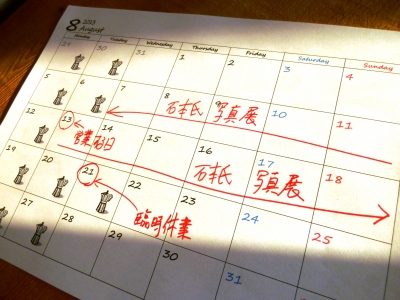 8 2013
August
Tuesday Wednesday Thursday Friday Saturday Sunday
29 30 31 1 2 3 4
5 6 7 8 9 10 11
写真展
12 13 14 15 16 17 18
営業
写真展
19 20 21 22 23 24 25
臨時休業
27 28 29 30 31